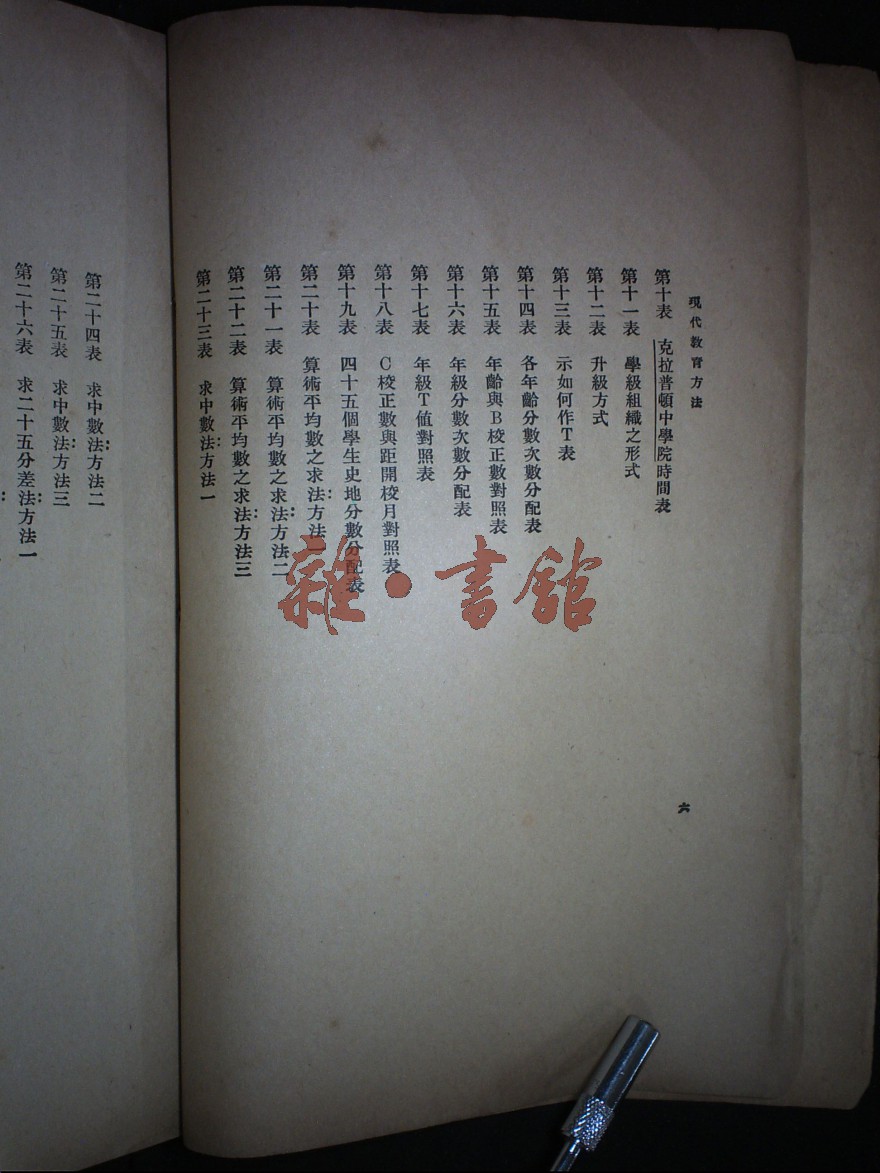 現代教育方法
第十表　克拉普頓中學院時間表
第十一表　學級組織之形式
第十二表　升級方式
第十三表　示如何作T表
第十四表　各年齡分數次數分配表
第十五表　年齡與B校正數對照表
第十六表　年級分數次數分配表
第十七表　年級T值對照表
第十八表　C校正數與距開校月對照表
第十九表　四十五個學生史地分數分配表
第二十表　算術平均數之求法：方法一
第二十一表　算術平均數之求法：方法二
第二十二表　算術平均數之求法：方法三
第二十三表　求中數法：方法一
六
第二十四表　求中數法：方法二
第二十五表　求中數法：方法三
第二十六表　求二十五分差法：方法一
雜·書館